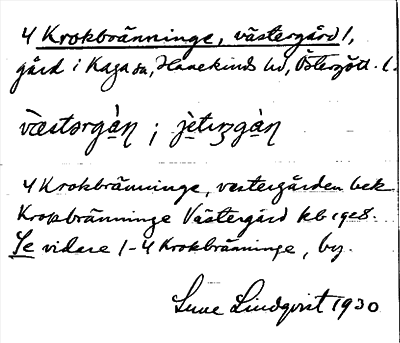 4 Krokbränninge, västergård 1,
gård i Kaga sn, Hanekinds hd, Östergötl. l.
västərgàṇ ; jètıŋgàṇ
4 Krokbränninge, vestergården bek.
Krokbränninge Västergård kb 1928.
Se vidare 1-4 Krokbränninge, by.
Sune Lindqvist 1930